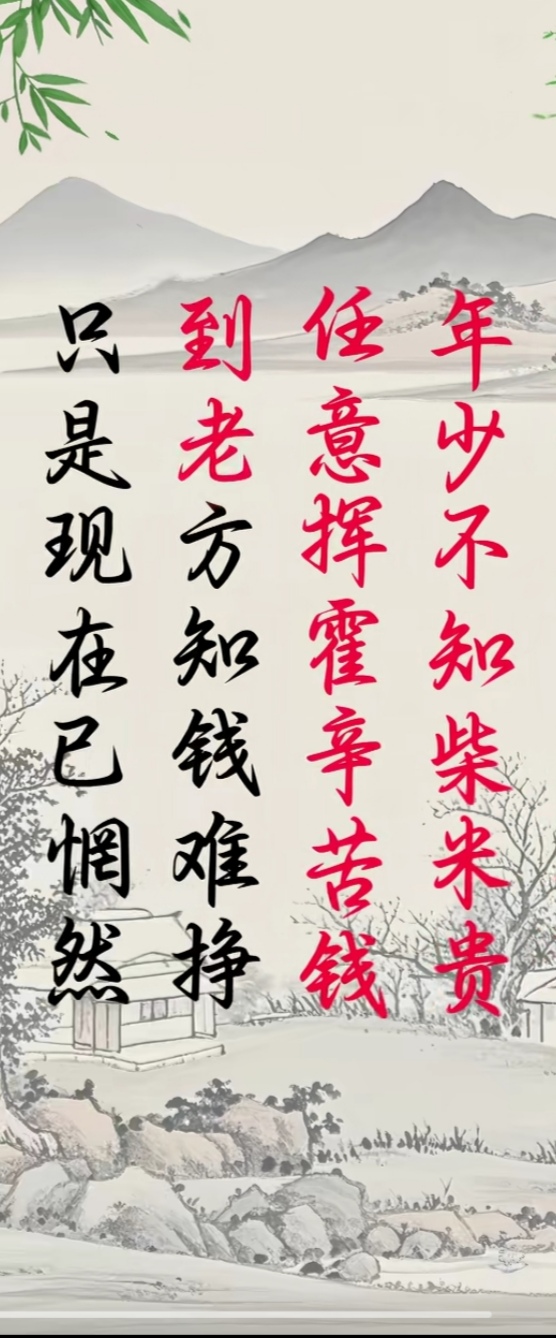 年少不知柴米贵
任意挥霍辛苦钱
到老方知钱难挣
只是现在已惘然